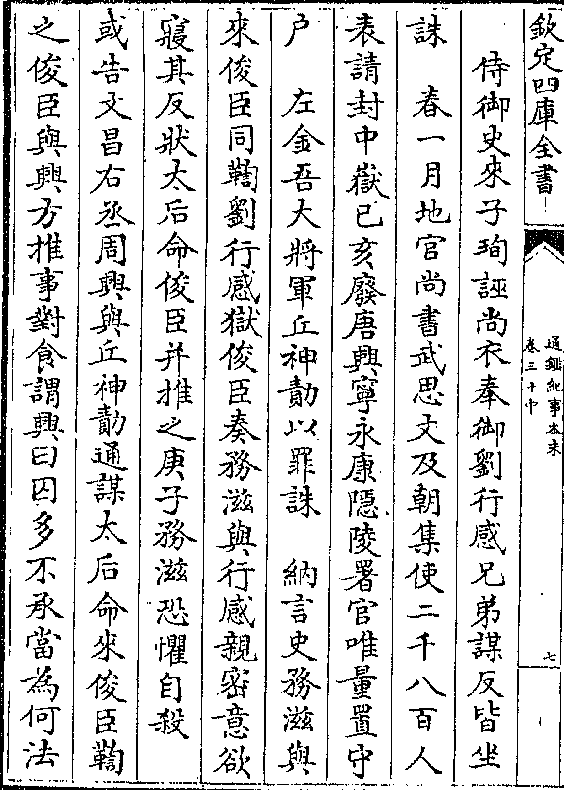 欽定四庫全書
通鑑紀事本末
卷三十中
七
侍御史來子珣誣尚衣奉御劉行感兄弟謀反皆坐
誅　春一月地官尚書武思文及朝集使二千八百人
表請封中嶽己亥廢唐興寧永康隱陵署官唯量置守
户　左金吾大將軍丘神勣以罪誅　納言史務滋與
來俊臣同鞫劉行感獄俊臣奏務滋與行感親密意欲
寢其反狀太后命俊臣并推之庚子務滋恐懼自殺
或告文昌右丞周興與丘神勣通謀太后命來俊臣鞫
之俊臣與興方推事對食謂興曰囚多不承當為何法